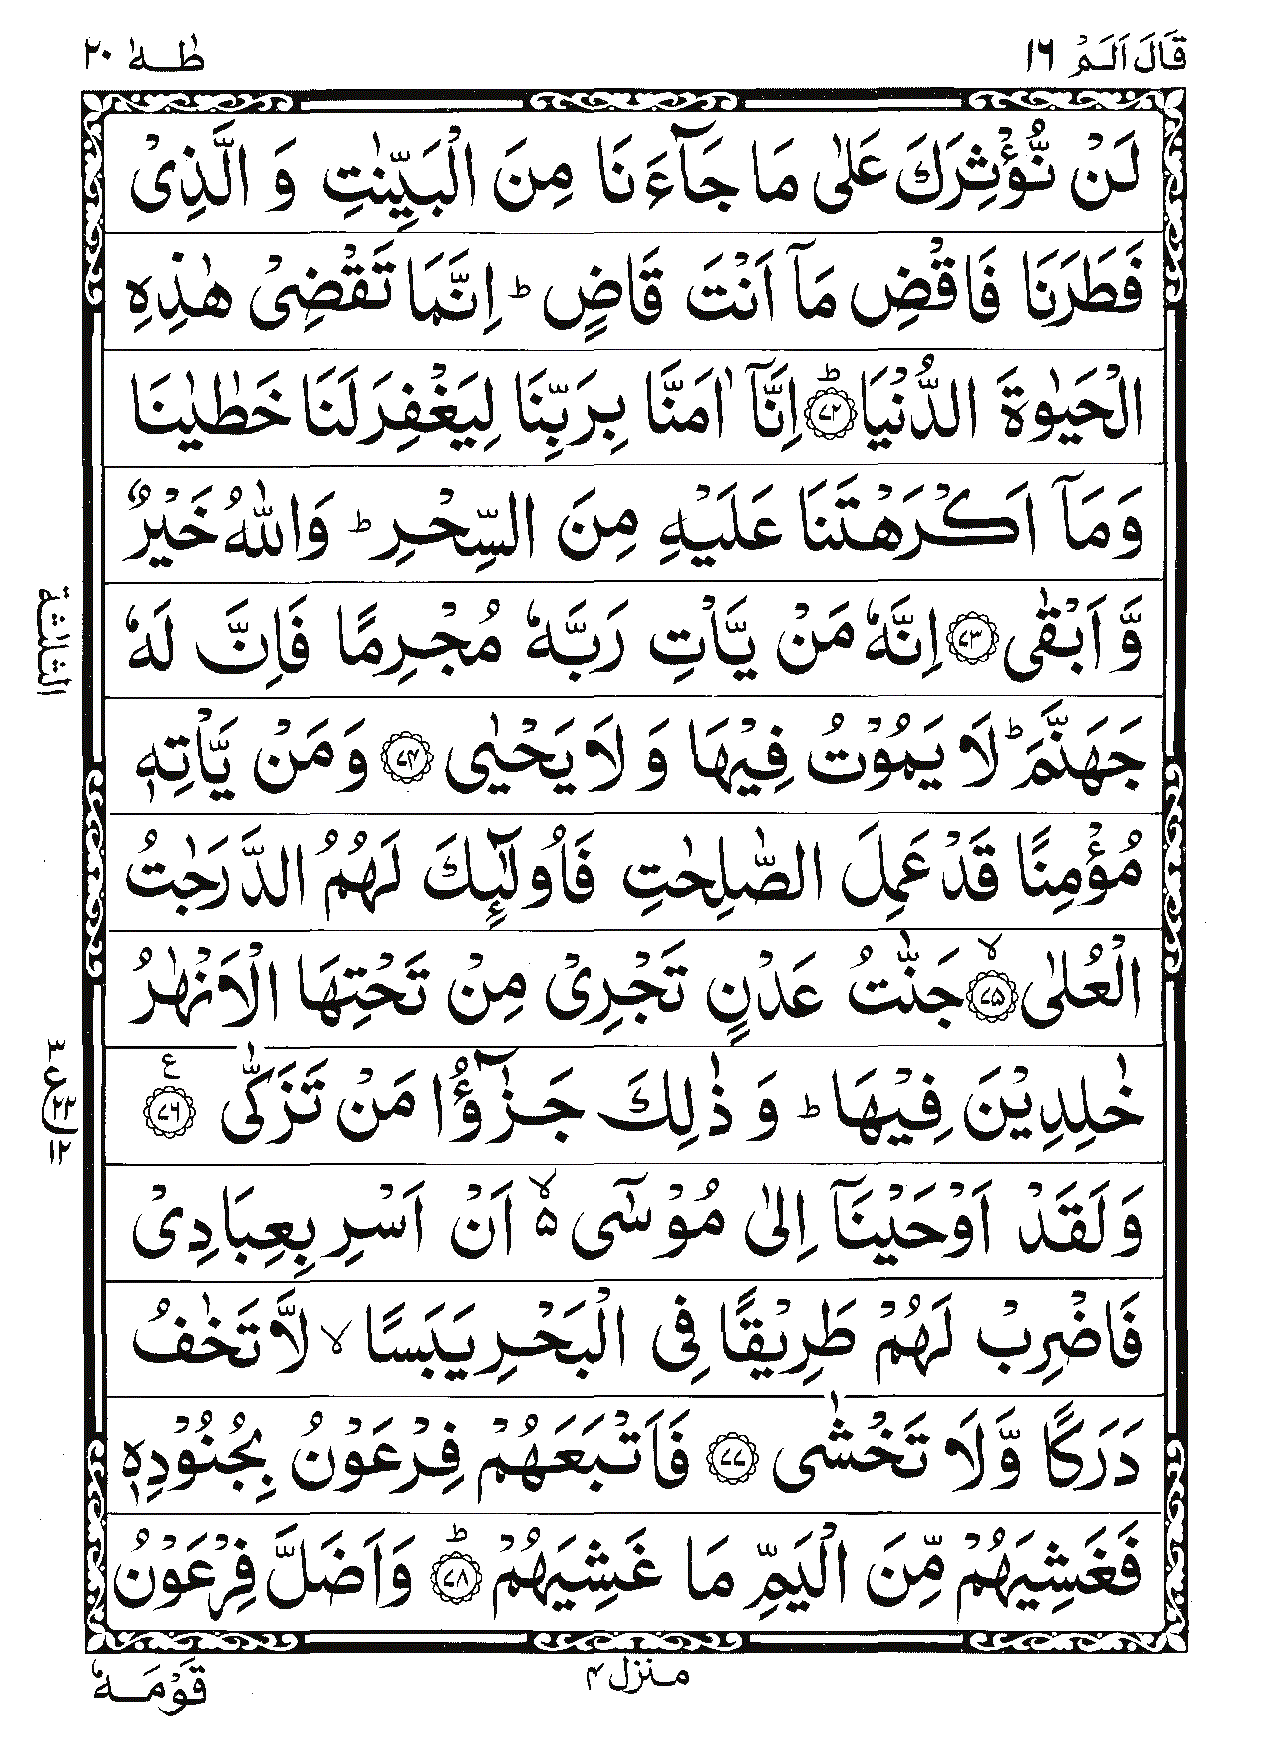 قَالَ اَلَمْ ١٦
طٰهٰ ٢٠
لَنْ نُّؤْثِرَكَ عَلٰى مَا جَآءَنَا مِنَ الْبَيِّنٰتِ وَ الَّذِىْ
فَطَرَنَا فَاقْضِ مَآ اَنْتَ قَاضٍ ؕ اِنَّمَا تَقْضِىْ هٰذِهِ
الْحَيٰوةَ الدُّنْيَا ؕ‏﴿۷۲﴾ اِنَّآ اٰمَنَّا بِرَبِّنَا لِيَغْفِرَ لَنَا خَطٰيٰنَا
وَمَآ اَكْرَهْتَنَا عَلَيْهِ مِنَ السِّحْرِ ؕ وَاللّٰهُ خَيْرٌ
وَّ اَبْقٰى ﴿۷۳﴾ اِنَّهٗ مَنْ يَّاْتِ رَبَّهٗ مُجْرِمًا فَاِنَّ لَهٗ
الثلثة
جَهَنَّمَ ؕ لَا يَمُوْتُ فِيْهَا وَ لَا يَحْيٰى ﴿۷۴﴾ وَ مَنْ يَّاْتِهٖ
مُؤْمِنًا قَدْ عَمِلَ الصّٰلِحٰتِ فَاُولٰٓئِكَ لَهُمُ الدَّرَجٰتُ
الْعُلٰى ۙ‏﴿۷۵﴾ جَنّٰتُ عَدْنٍ تَجْرِىْ مِنْ تَحْتِهَا الْاَنْهٰرُ
خٰلِدِيْنَ فِيْهَا ؕ وَ ذٰلِكَ جَزٰٓؤُا مَنْ تَزَكّٰى ﴿۷۶﴾ ع
٤
ع ٢٢
١٢
وَلَقَدْ اَوْحَيْنَآ اِلٰى مُوْسٰٓى ۙ۬ اَنْ اَسْرِ بِعِبَادِىْ
فَاضْرِبْ لَهُمْ طَرِيْقًا فِى الْبَحْرِ يَبَسًا ۙ لَّا تَخٰفُ
دَرَكًا وَّ لَا تَخْشٰى ﴿۷۷﴾ فَاَتْبَعَهُمْ فِرْعَوْنُ بِجُنُوْدِهٖ
فَغَشِيَهُمْ مِّنَ الْيَمِّ مَا غَشِيَهُمْ ؕ‏﴿۷۸﴾ وَاَضَلَّ فِرْعَوْنُ
منزل ۴
قَوْمَهٗ